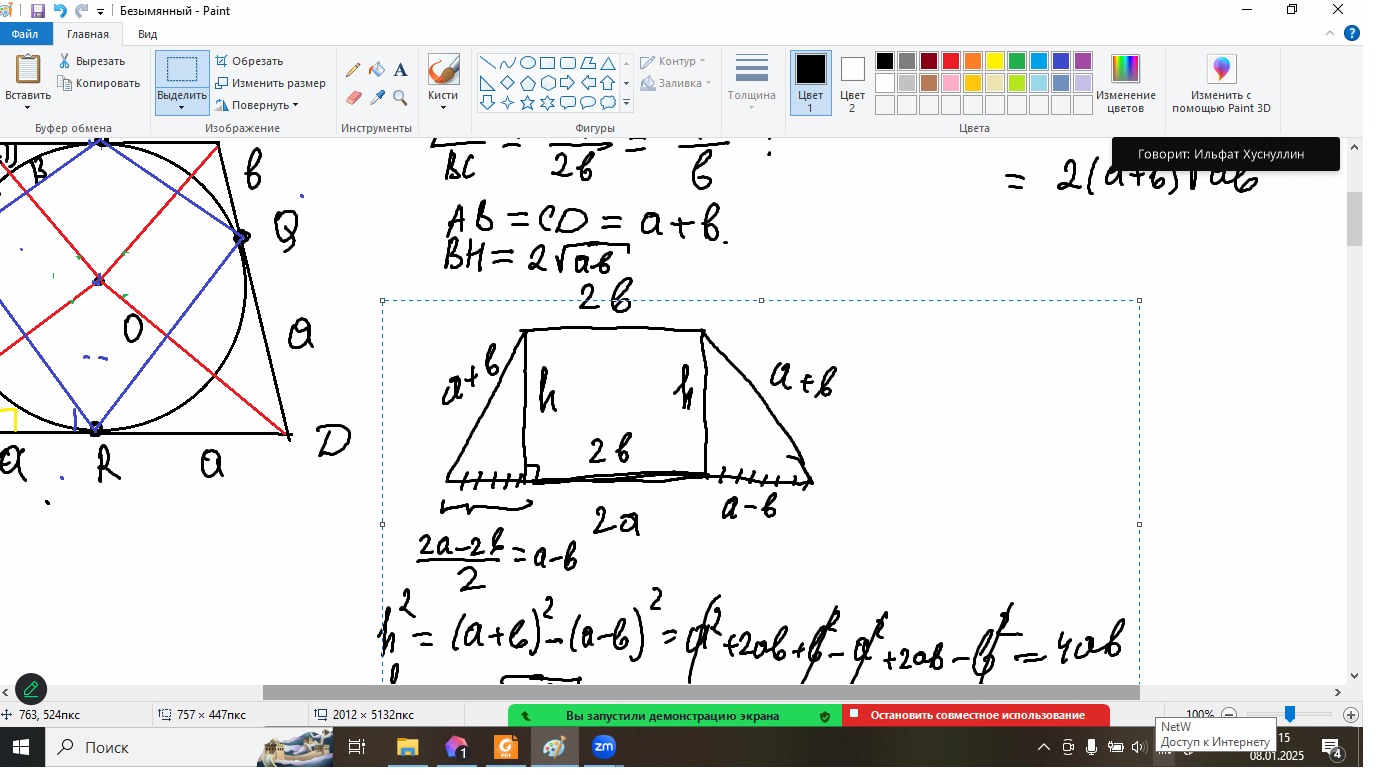 Безымянный - Paint
Файл Главная Вид
Вставить Вырезать Копировать Выделить Обрезать Изменить размер Повернуть Кисти Контур Заливка Толщина Цвет 1 Цвет 2 Изменение цветов Изменить с помощью Paint 3D
Буфер обмена Изображение Инструменты Фигуры Цвета
Говорит: Ильфат Хуснуллин
BC = 2в = в
= 2(a+в)√ab
B в
AB = CD = a+в.
Q
BH = 2√ab
2в
O a
a+в h h a+в
2в
D
a R a
2a a-в
(2a-2в)/2 = a-в
h² = (a+в)² - (a-в)² = a² + 2ab + в² - a² + 2ab - в² = 4ab
763, 524пкс 757 × 447пкс 2012 × 5132пкс 100%
Вы запустили демонстрацию экрана Остановить совместное использование
NetW
Доступ к Интернету
Поиск 1 PDF zm 15
08.01.2025 4